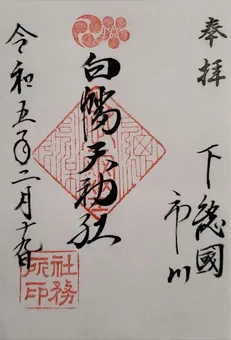 奉拝
下総國
市川
白幡天神社
令和五年二月十九日
社務
所印